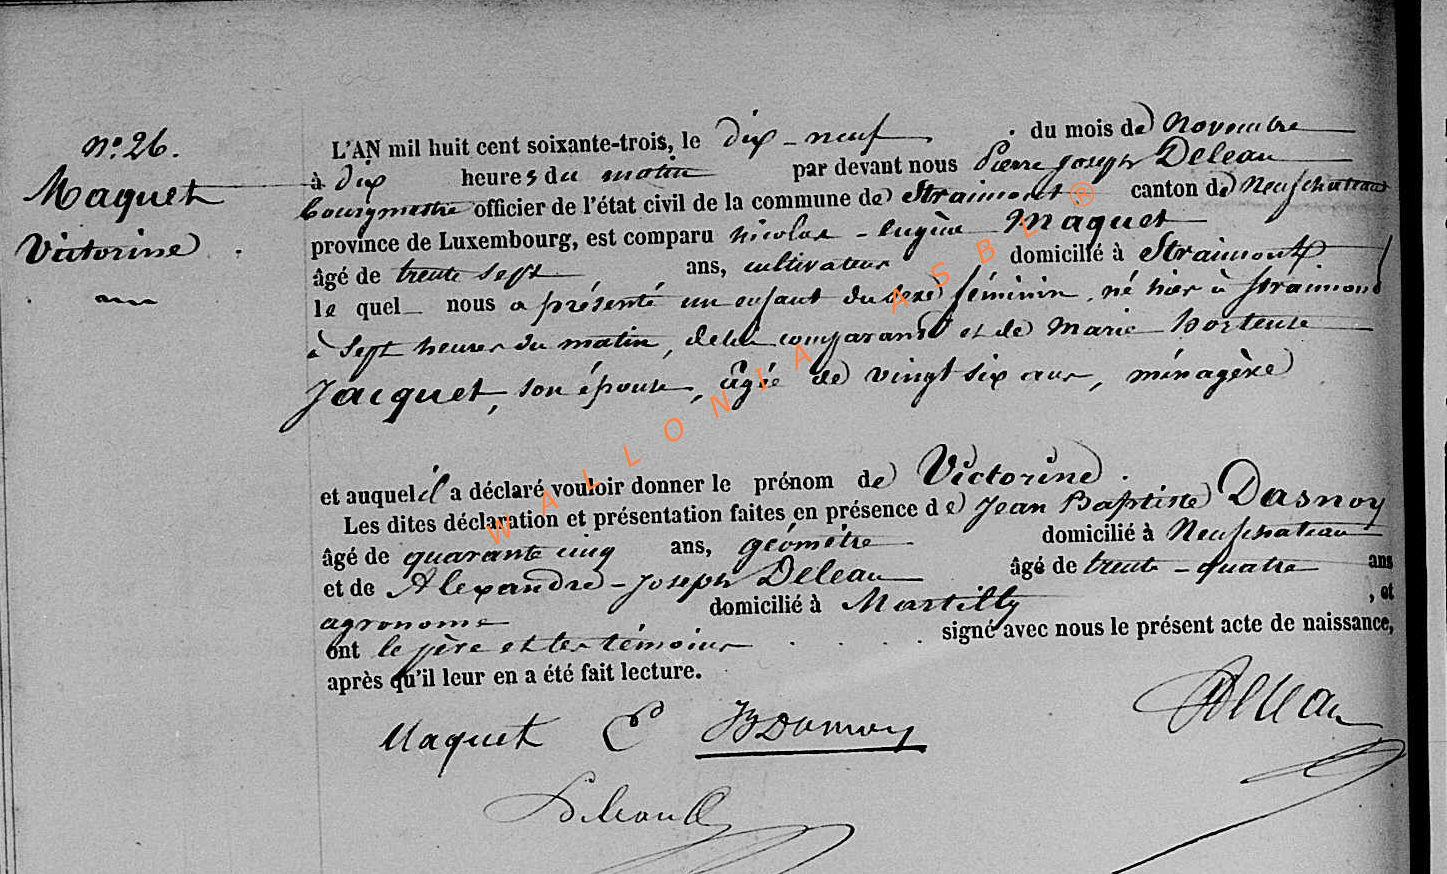 n° 26.
Maquet
Victorine
L'AN mil huit cent soixante-trois, le dix-neuf du mois de Novembre
à dix heures du matin par devant nous Pierre Joseph Deleau
bourgmestre officier de l'état civil de la commune de Straimont canton de Neufchateau
province de Luxembourg, est comparu nicolas-eugène Maquet
âgé de trente sept ans, cultivateur domicilié à Straimont
le quel nous a présenté un enfant du sexe féminin, né hier à Straimond
à sept heures du matin, de lui comparant et de Marie hortense
Jacquet, son épouse, âgée de vingt six ans, ménagère
et auquel il a déclaré vouloir donner le prénom de Victorine.
Les dites déclaration et présentation faites en présence de Jean Baptiste Dasnoy
âgé de quarante cinq ans, géomètre domicilié à Neufchateau
et de Alexandre-Joseph Deleau âgé de trente-quatre ans
agronome domicilié à Martilly, et
ont le père et les témoins signé avec nous le présent acte de naissance,
après qu'il leur en a été fait lecture.
Maquet E JB Dasnoy Deleau
Deleau
WALLONIA ASBL ®